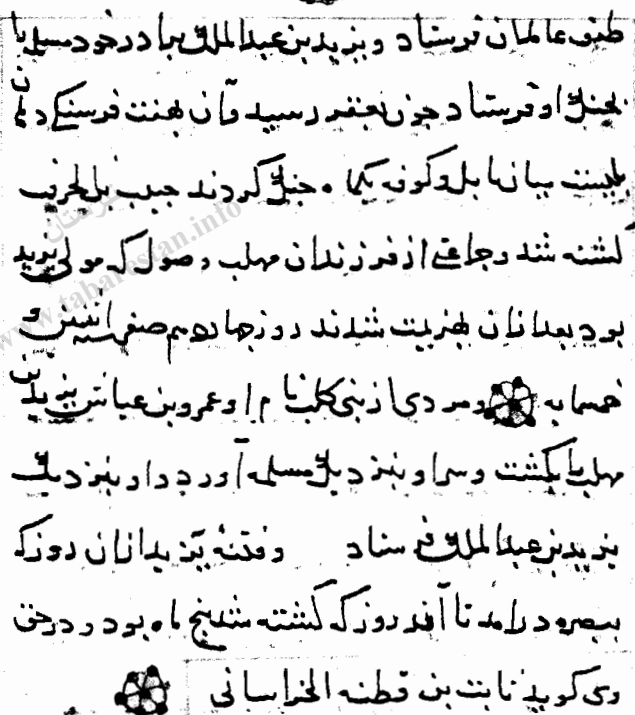 طبق عالمان فرستاد و یزید بن عبدالملک برادر خود مسلمه را
بجنک او فرستاد جون بعقر رسید و آن بهنت فرسنکی
میان بابل و کوفه جنک کردند
کشته شد و جماعتی از فرزندان مهلب و صول که مولی یزید
بود بعد ازان هزیمت شدند روز جهاردهم صفر
و مردی از بنی کلب نام او عمرو بن عباش یزید بن
مهلب را بکشت و سر او بنزدیک مسلمه آورد و او بنزدیک
یزید بن عبدالملک فرستاد و فتنه یزید ازان روز که
ببصره درامد تا آخر روز که کشته شد پنج ماه بود و در حق
وی کوید ثابت بن قطنه الخراسانی
www.tabarestan.info